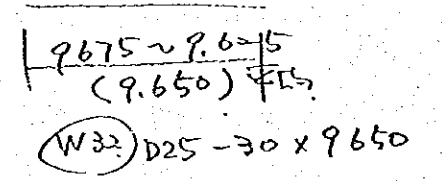 9675~9.625
(9.650) 平均
W32 D25-30×9650